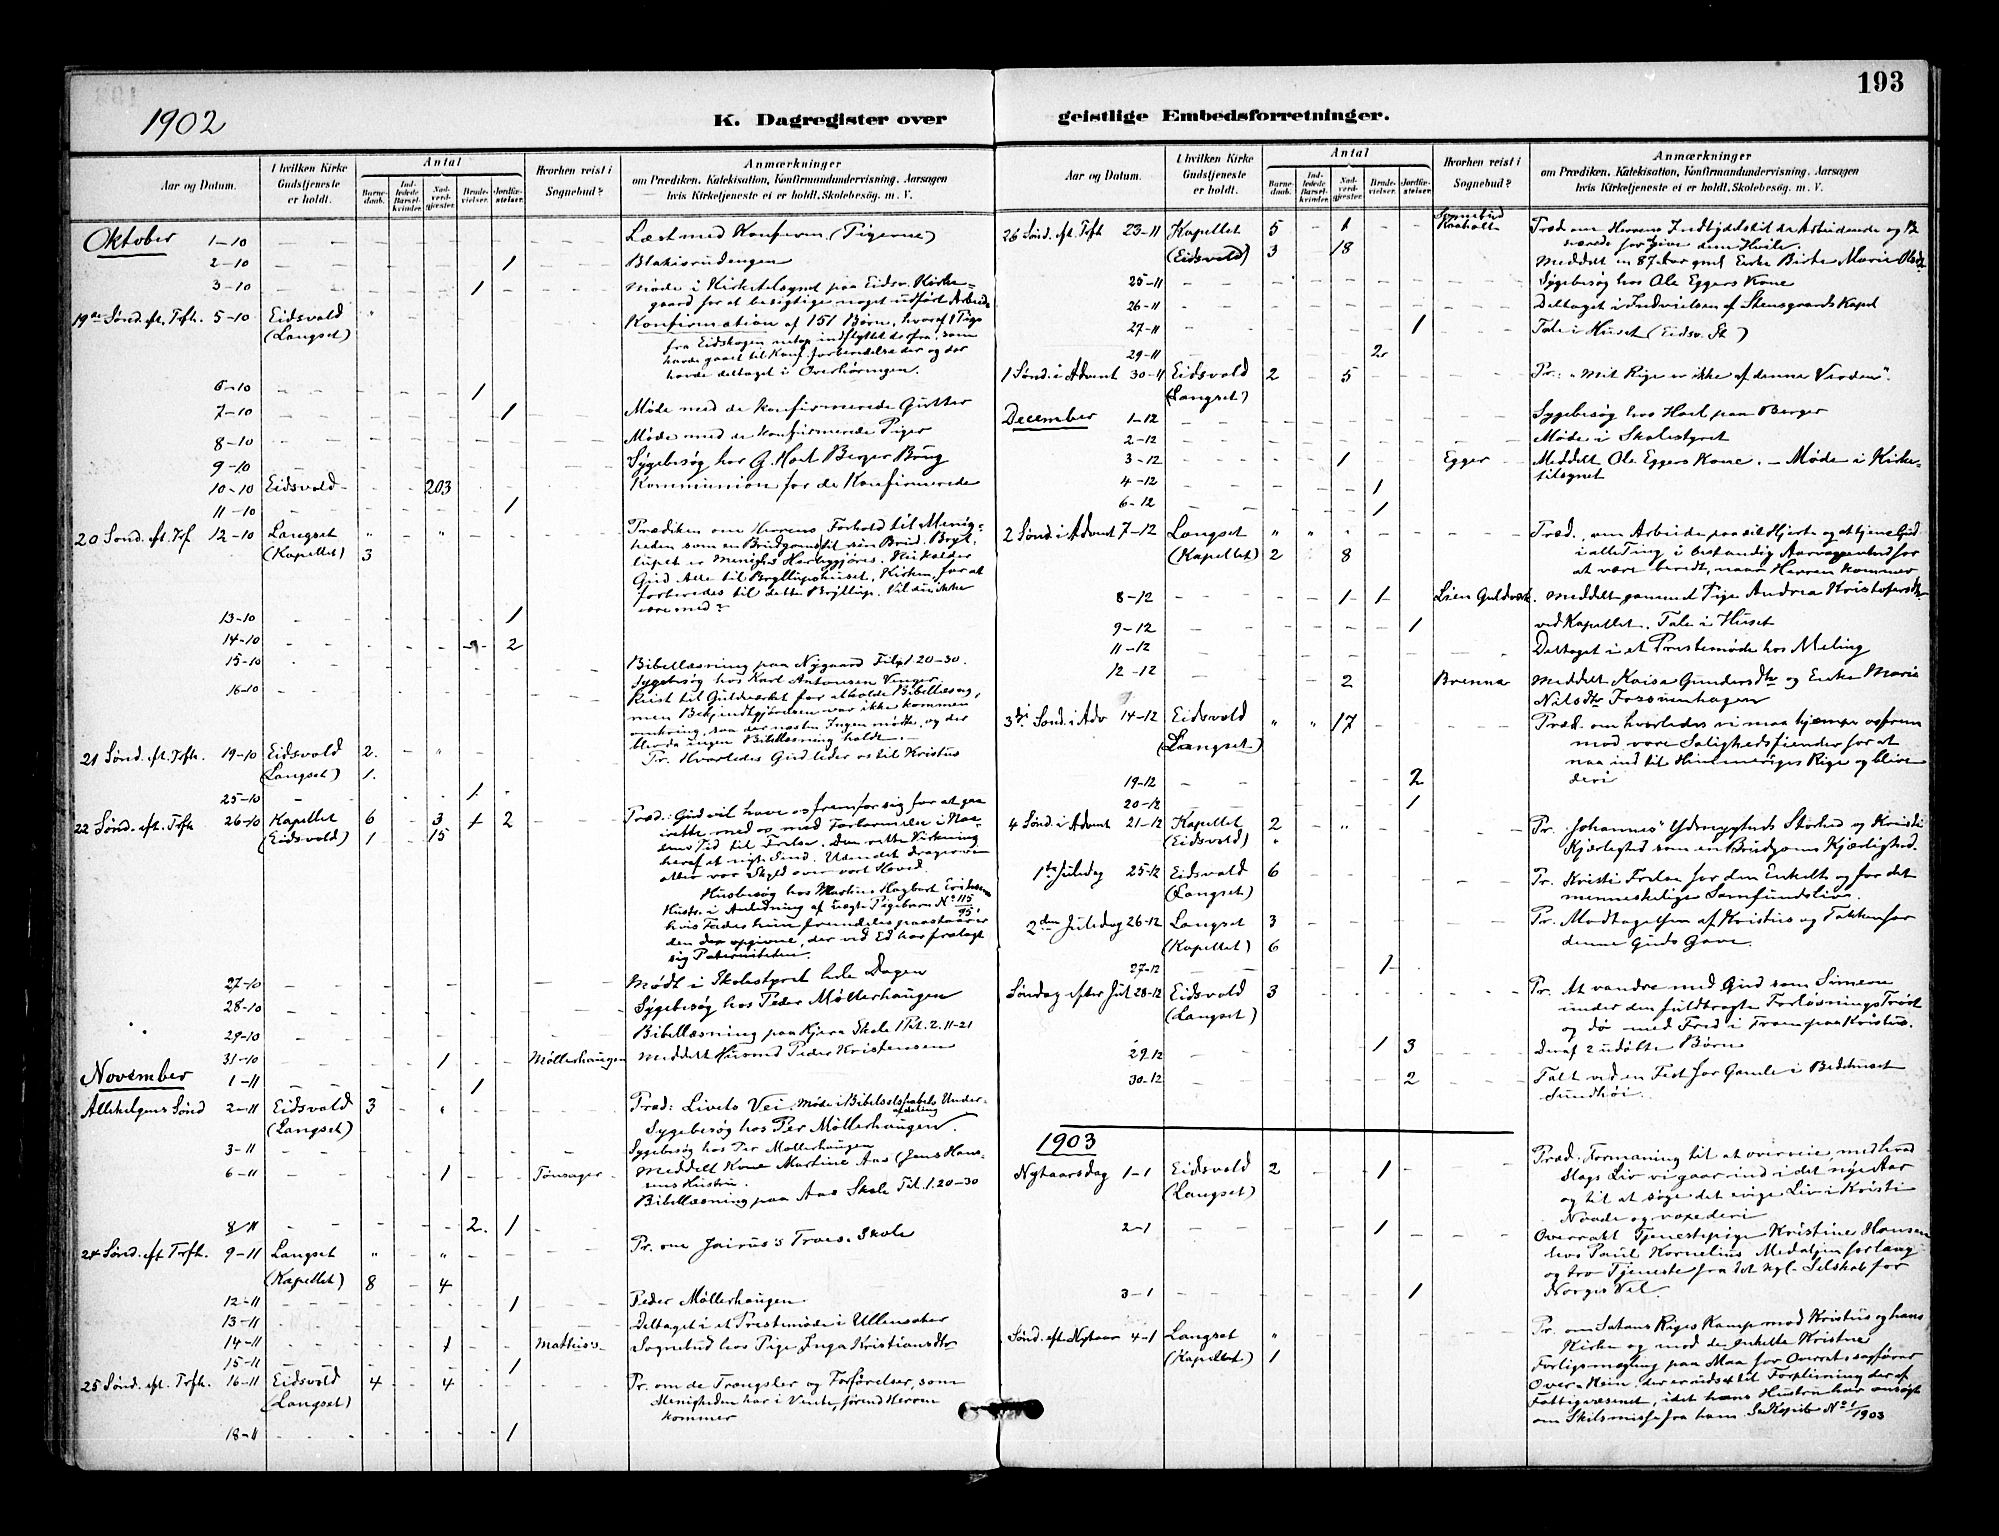 193
1902
K. Dagregister over geistlige Embedsforretninger.
Aar og Datum.
I hvilken Kirke Gudstjeneste er holdt.
Antal
Barnedaab.
Indledede Barselkvinder.
Nadverdgjæster.
Brudevielser.
Jordfæstelser.
Hvorhen reist i Sognebud?
Anmærkninger
om Prædiken, Katekisation, Konfirmandundervisning, Aarsagen
hvis Kirketjeneste ei er holdt, Skolebesøg. m. V.
Oktober 1-10 Læst med Konfirm. (Pigerne)
2-10 1
3-10 1 Møde i Kirketilsynet paa Eidsv. Kirke-
gaard for at besigtige noget udført Arbeide
19de Sønd. eft. Trfh. 5-10 Eidsvold " Konfirmation af 151 Børn, hvoraf 1 Pige
(Langset) fra Eidskogen netop indflyttet derfra, som
havde gaaet til Konf. forberedelse der og der
havde deltaget i Overhøringen.
6-10 1
7-10 1 Møde med de konfirmerede Gutter
8-10 Møde med de konfirmerede Piger
9-10 Sygebesøg hos G. Hoel Berger Brug
10-10 Eidsvold 203 Kommunion for de Konfirmerede
11-10 1
20 Sønd. eft. Trf 12-10 Langset " " Prædiken om Herrens Forhold til Menig-
(Kapellet) 3 heden som en Brudgoms til sin Brud. Bryl-
lupet er
Gud. Alle til Bryllupshuset, Kirken, for at
forberedes til dette Bryllup. Vil du ikke
være med?
13-10 1
14-10 2
15-10 Bibellæsning paa Nygaard Fil. 1. 20-30.
Sygebesøg hos Karl Antonsen
16-10 Reist til Guldverket for at holde Bibellæsng,
men Bekjendtgjørelsen var ikke kommen
omkring, saa der næsten Ingen mødte, og der
blev da ingen Bibellæsning holdt.
21 Sønd. eft. Trfh. 19-10 Eidsvold 2. " Pr. Hvorledes Gud leder os til Kristus
(Langset) 1.
25-10 1
22 Sønd. eft. Trfh 26-10 Kapellet 6 3 1 2 Præd: Gud vil have os frem for sig for at gaa
(Eidsvold) 1 15 irette med os med Forlarmelse i Naa-
dens Tid til Frelse. Den rette Virkning
heraf at
Husbesøg hos Martin Hagbart Eriksens
Hustr. i Anledning af uægte Pigebarn No 115/95,
hvis Fader hun fremdeles paastaar er
den opgivne, der ved Ed har fralagt
sig Paterniteten.
27-10 Mødt i Skolestyret hele Dagen
28-10 Sygebesøg hos Peder Møllerhaugen
29-10 Bibellæsning paa Kjera Skole 1 Pet. 2. 11-21
31-10 1 Møllerhaugen Meddelt Husmd Peder Kristensen
November 1-11 1
Allehelgens Sønd 2-11 Eidsvold 3 " Præd: Livets Vei. Møde i Bibelselskabets Under-
afdeling
(Langset) Sygebesøg hos Per Møllerhaugen.
3-11 Sygebesøg hos Per Møllerhaugen
6-11 1 Tønsager Meddelt Kone Martine Aas (Jens Han-
sens Hustru.
Bibellæsning paa Aas Skole Fil. 1. 20-30
8-11 2. 1
24 Sønd. eft Trfh. 9-11 Langset " " Pr. om Jairus's Troes-Skole
(Kapellet) 8 4
12-11 1 Peder Møllerhaugen
13-11 Deltaget i et Prestemøde i Ullensaker
14-11 1 Mathis's Sognebud hos Pige Inga Kristiansdtr
15-11 1
25 Sønd. eft. Trfh. 16-11 Eidsvold 4 4 Pr. om de Trængsler og Forførelser, som
(Langset) Menigheden har i Vente, førend Herren
kommer
18-11 1
Aar og Datum.
I hvilken Kirke Gudstjeneste er holdt.
Antal
Barnedaab.
Indledede Barselkvinder.
Nadverdgjæster.
Brudevielser.
Jordfæstelser.
Hvorhen reist i Sognebud?
Anmærkninger
om Prædiken, Katekisation, Konfirmandundervisning, Aarsagen
hvis Kirketjeneste ei er holdt, Skolebesøg. m. V.
26 Sønd. eft. Trfh 23-11 Kapellet 5 1 Sognebud Raaholt Præd om Herrens Indbydelse til de Arbeidende og Be-
(Eidsvold) 3 18 sværede for at give dem Hvile.
Meddelt en 87 Aar gml Enke Birte Marie
25-11 Sygebesøg hos Ole Eggers Kone
26-11 Deltaget i Indvielsen af Stensgaards Kapel
27-11 1 Tale i Huset (Eidsv. St)
29-11 2
1 Sønd. i Advent 30-11 Eidsvold 2 5 Pr: "Mit Rige er ikke af denne Verden".
(Langset)
December 1-12 Sygebesøg hos Hoel paa Berger
2-12 Møde i Skolestyret
3-12 1 Egger Meddelt Ole Eggers Kone. - Møde i Kirke-
4-12 1 tilsynet
6-12 1
2 Sønd. i Advent 7-12 Langset " " " Præd. om Arbeide paa sit Hjerte og at tjene Gud
(Kapellet) 2 8 i alle Ting i bestandig Aarvaagenhed for
at være beredt, naar Herren kommer
8-12 1 1 Lien Guldverk. Meddelt gammel Pige Andrea Kristofersdtr
9-12 1 ved Kapellet. Tale i Huset
11-12 Deltaget i et Prestemøde hos Meling
12-12 2 Brenna Meddelt Kaisa Gundersdtr og Enke Marie
Nilsdtr
3die Sønd. i Adv 14-12 Eidsvold " " 17 Præd. om hvorledes vi maa kjæmpe os frem
(Langset) mod vore Saligheds fiender for at
naa ind til Himmeriges Rige og blive
19-12 2 deri
20-12 1
4 Sønd. i Advent 21-12 Kapellet 2 " Pr. Johannes' Ydmygheds Storhed og Kristi
(Eidsvold) " Kjærlighed som en Brudgoms Kjærlighed.
1ste Juledag 25-12 Eidsvold 6 Pr. Kristi Frelse for den Enkelte og for det
(Langset) menneskelige Samfundsliv.
2den Juledag 26-12 Langset 3 Pr. Modtagelsen af Kristus og Takken for
(Kapellet) 6 denne Guds Gave.
27-12 1
Søndag efter Jul 28-12 Eidsvold 3 Pr. At vandre med Gud som Simeon
(Langset) under den fuldbragte Forløsnings Trøst
og dø med Fred i Troen paa Kristus.
29-12 1 3 Deraf 2 udøbte Børn
30-12 2 Talt ved en Fest for Gamle i Bedehuset
Sundhøi.
1903
Nytaarsdag 1-1 Eidsvold 2 1 Præd. Formaning til at overveie, med hvad
(Langset) Slags Liv vi gaar ind i det nye Aar
og til at søge det evige Liv i Kristi
Naade og voxe deri
2-1 1 Overrakt Tjenestepige Kristine Hansen
hos Paul Kornelius Medaljen for lang
og tro Tjeneste fra det kgl. Selskab for
3-1 1 Norges Vel.
Sønd. eft Nytaar 4-1 Langset " Pr. om Satans Riges Kamp mod Kristus og hans
(Kapellet) 1 Kirke og mod de enkelte Kristne
Forligsmægling paa Maa for Overretssagfører
Over-Hein, der er udsat til Forpleining der af
Fattigvæsenet, idet hans Hustru har ansøgt
om Skilsmisse fra ham. Se Kopib. No 1/1903